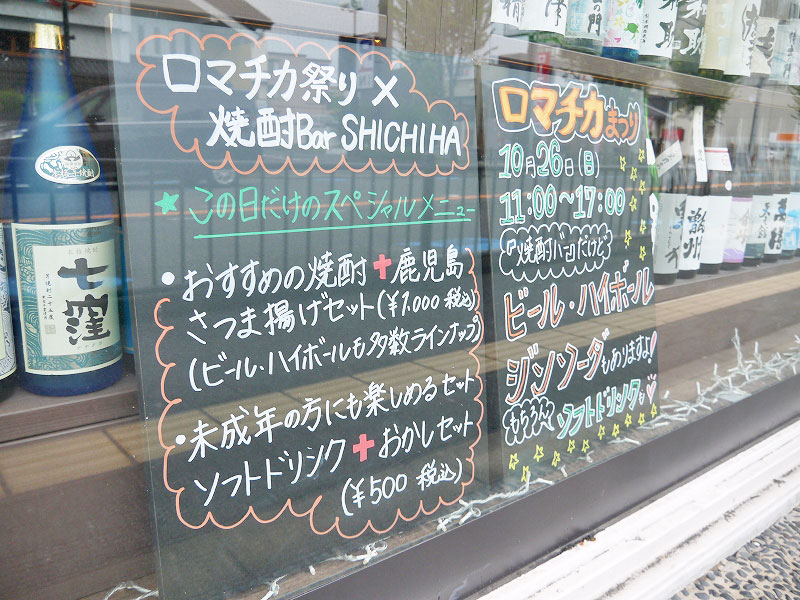 ロマチカ祭り×
焼酎Bar SHICHIHA
★この日だけのスペシャルメニュー
・おすすめの焼酎+鹿児島
さつま揚げセット(¥1,000 税込)
(ビール・ハイボールも多数ラインナップ)
・未成年の方にも楽しめるセット
ソフトドリンク+おかしセット
(¥500 税込)
ロマチカまつり
10月26日(日)
11:00〜17:00
『焼酎バー』だけど
ビール・ハイボール
ジンソーダもありますよ!
もちろんソフトドリンクも♡
七窪